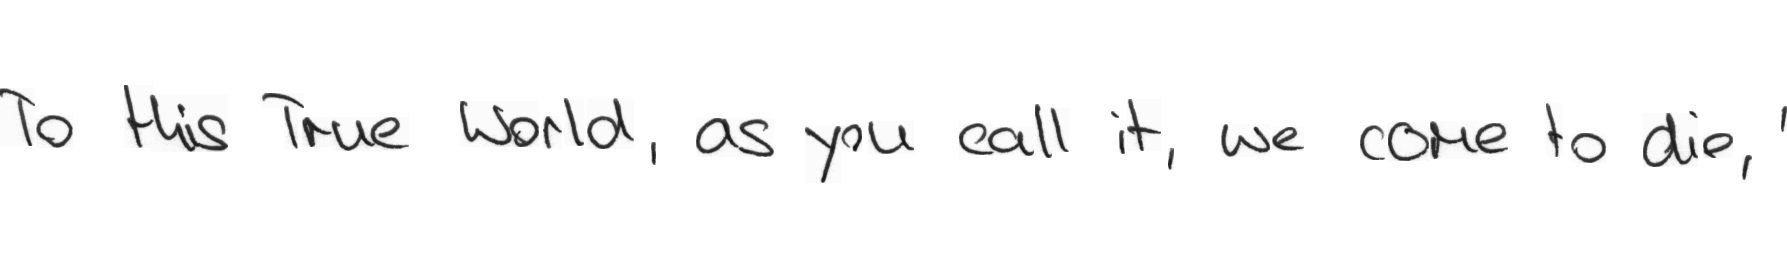 To this True World, as you call it, we come to die,'